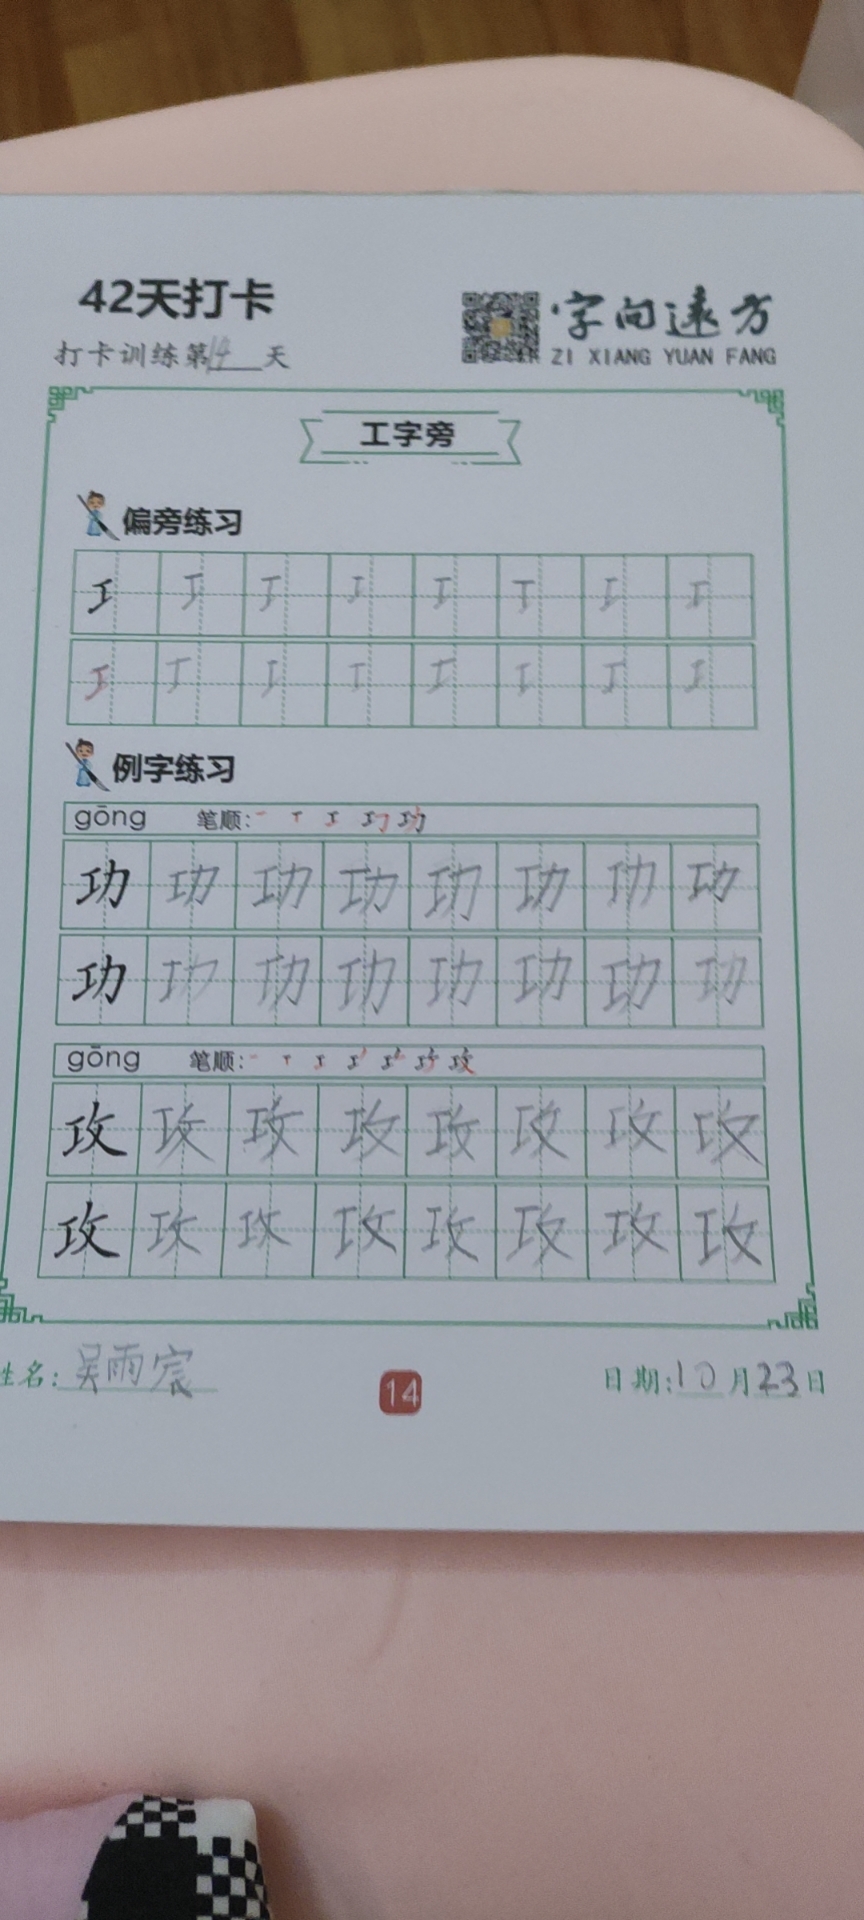 42天打卡
字向远方
打卡训练第14天
ZI XIANG YUAN FANG
工字旁
偏旁练习
工 工 工 工 工 工 工 工
工 工 工 工 工 工 工 工
例字练习
gōng 笔顺:
功 功 功 功 功 功 功 功
功 功 功 功 功 功 功 功
gōng 笔顺:
攻 攻 攻 攻 攻 攻 攻 攻
攻 攻 攻 攻 攻 攻 攻 攻
姓名:吴雨宸
14
日期:10月23日